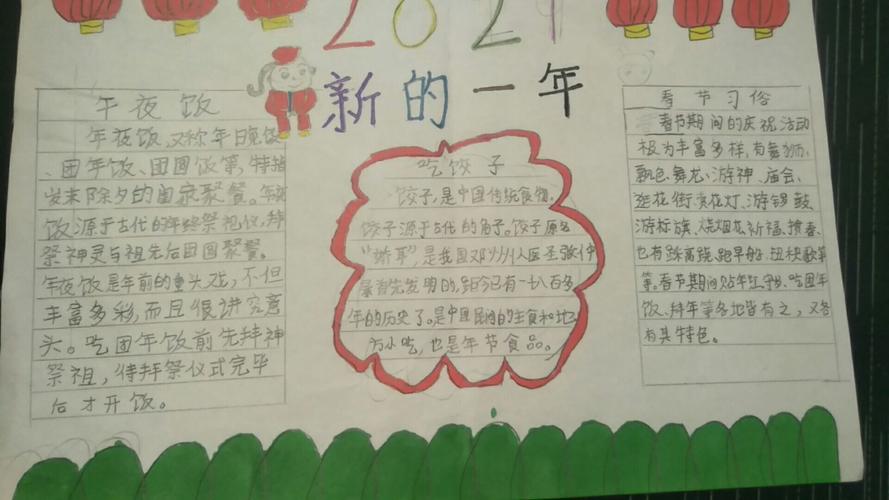 2021
新的一年
午夜饭
年夜饭,又称年日晚饭
、团年饭、团圆饭等,特指
岁末除夕的阖家聚餐。年夜
饭源于古代的年终祭祀仪,拜
祭神灵与祖先后团圆聚餐。
年夜饭是年前的重头戏,不但
丰富多彩,而且很讲究意
头。吃团年饭前先拜神
祭祖,待拜祭仪式完毕
后才开饭。
吃饺子
饺子,是中国传统食物。
饺子源于古代的角子。饺子原名
“娇耳”,是我国邓州人医圣张仲
景首先发明的,距今已有一千八百多
年的历史了。是中国民间的主食和地
方小吃,也是年节食品。
春节习俗
春节期间的庆祝活动
极为丰富多样,有舞狮、
飘色、舞龙、游神、庙会、
逛花街、赏花灯、游锣鼓、
游标旗、烧烟花、祈福、掼春、
也有踩高跷、跑旱船、扭秧歌等
等。春节期间贴年红、守岁、吃团年
饭、拜年等各地皆有之,又各
有其特色。